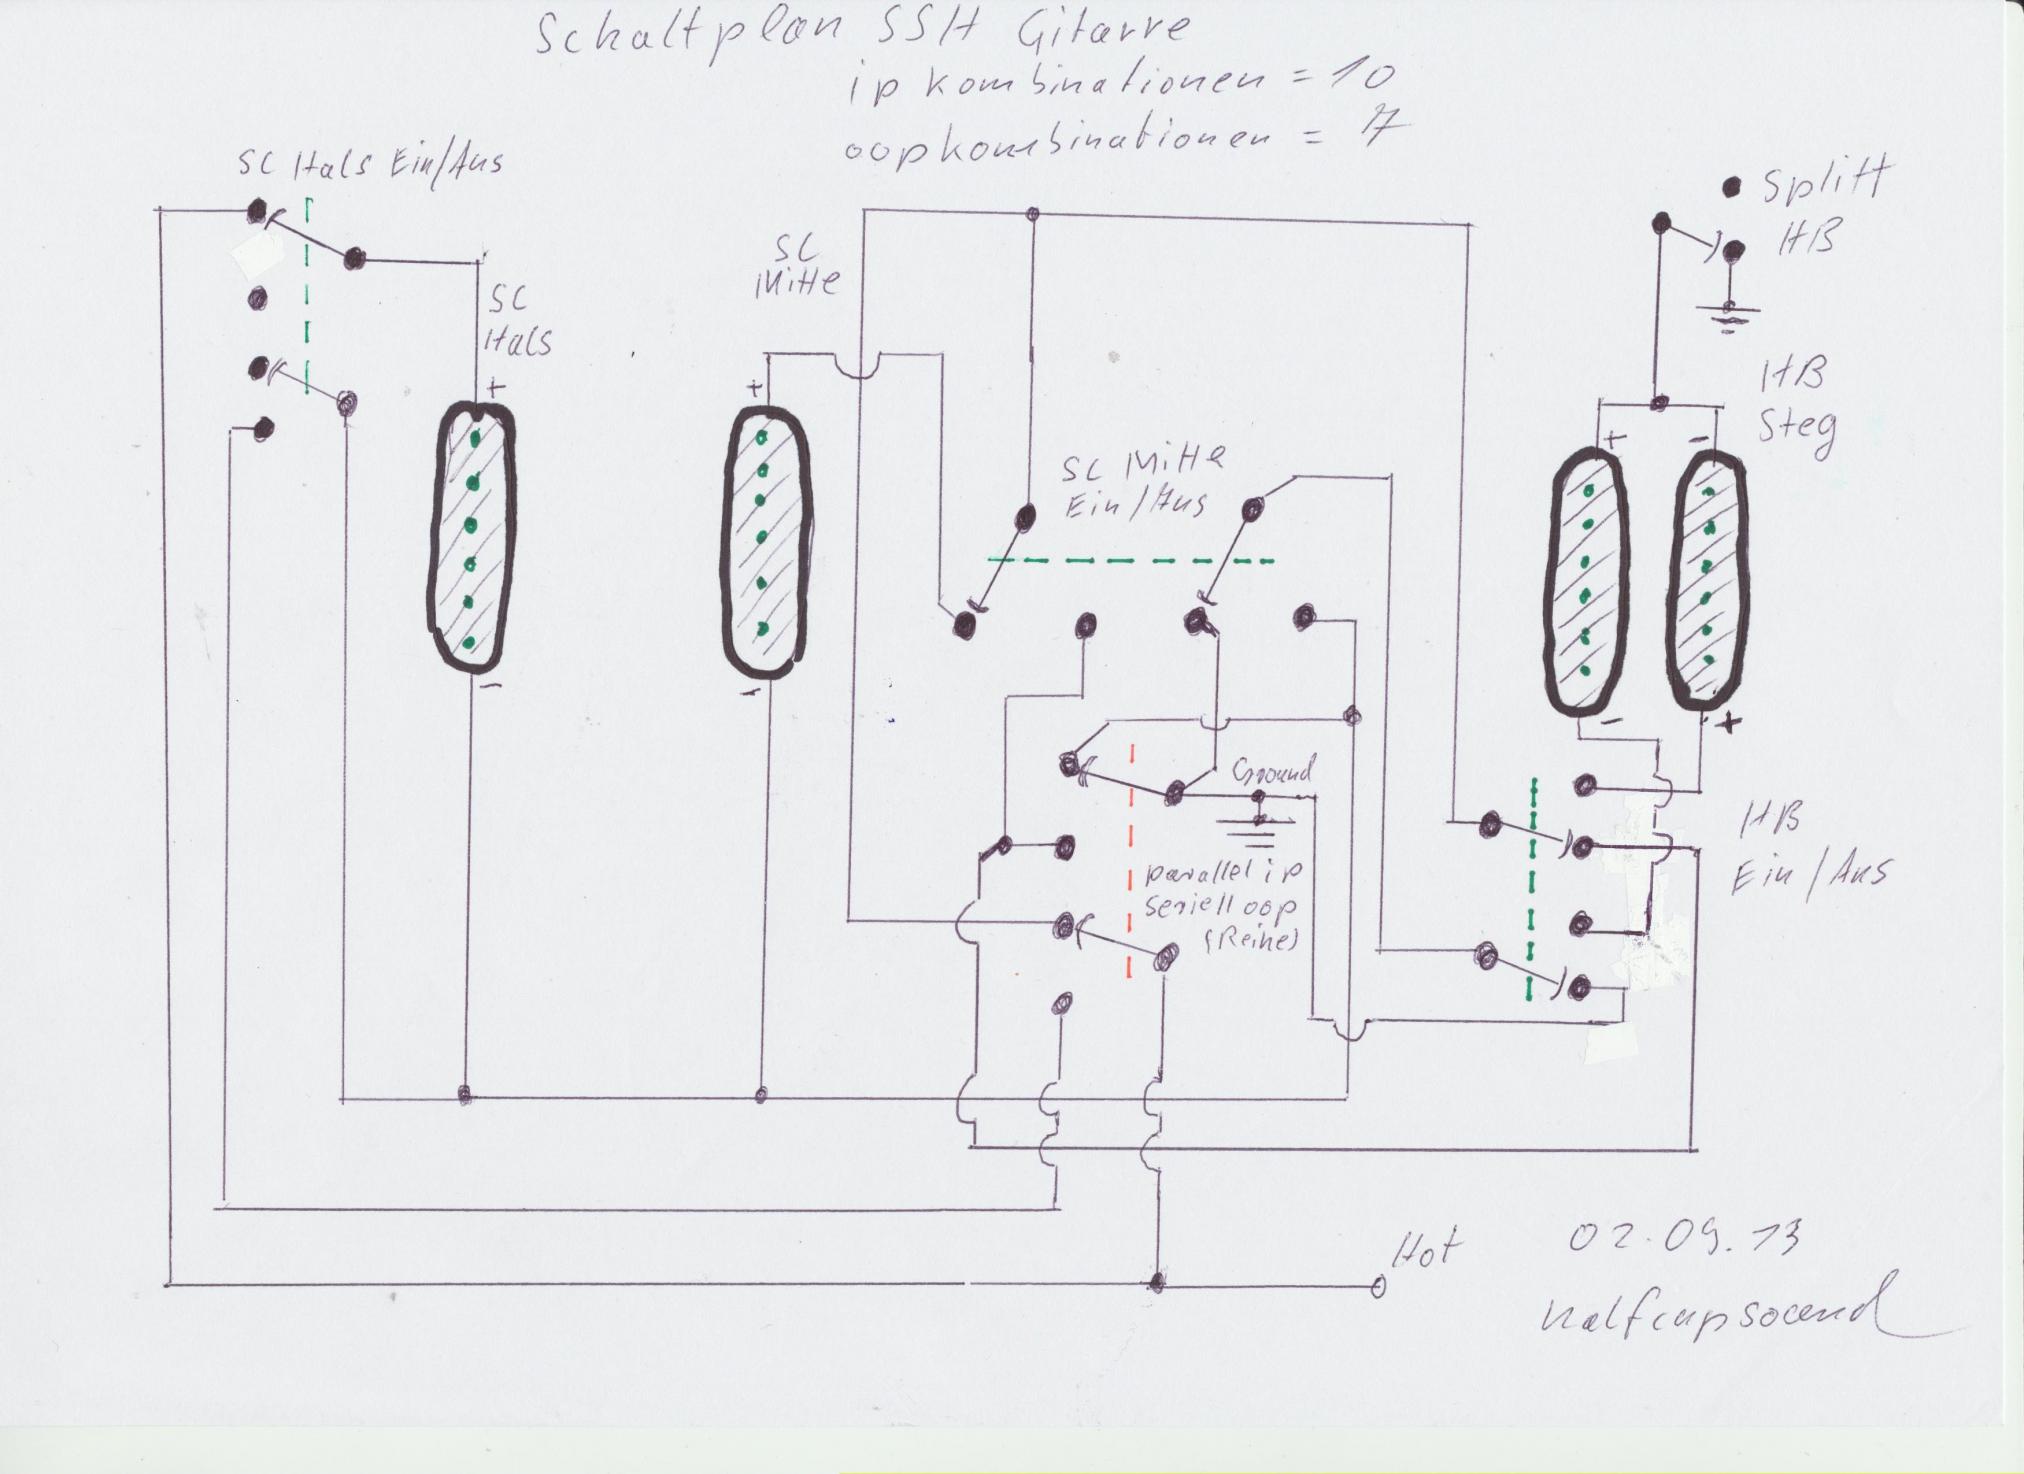 Schaltplan SSH Gitarre
ip kombinationen = 10
oopkombinationen = 7
SC Hals Ein/Aus
Splitt
HB
SC
Mitte
SC
Hals
+
+
HB
Steg
+ -
SC Mitte
Ein/Aus
-
-
- +
Ground
HB
Ein/Aus
parallel ip
seriell oop
(Reihe)
Hot
02.09.13
halfcupsound